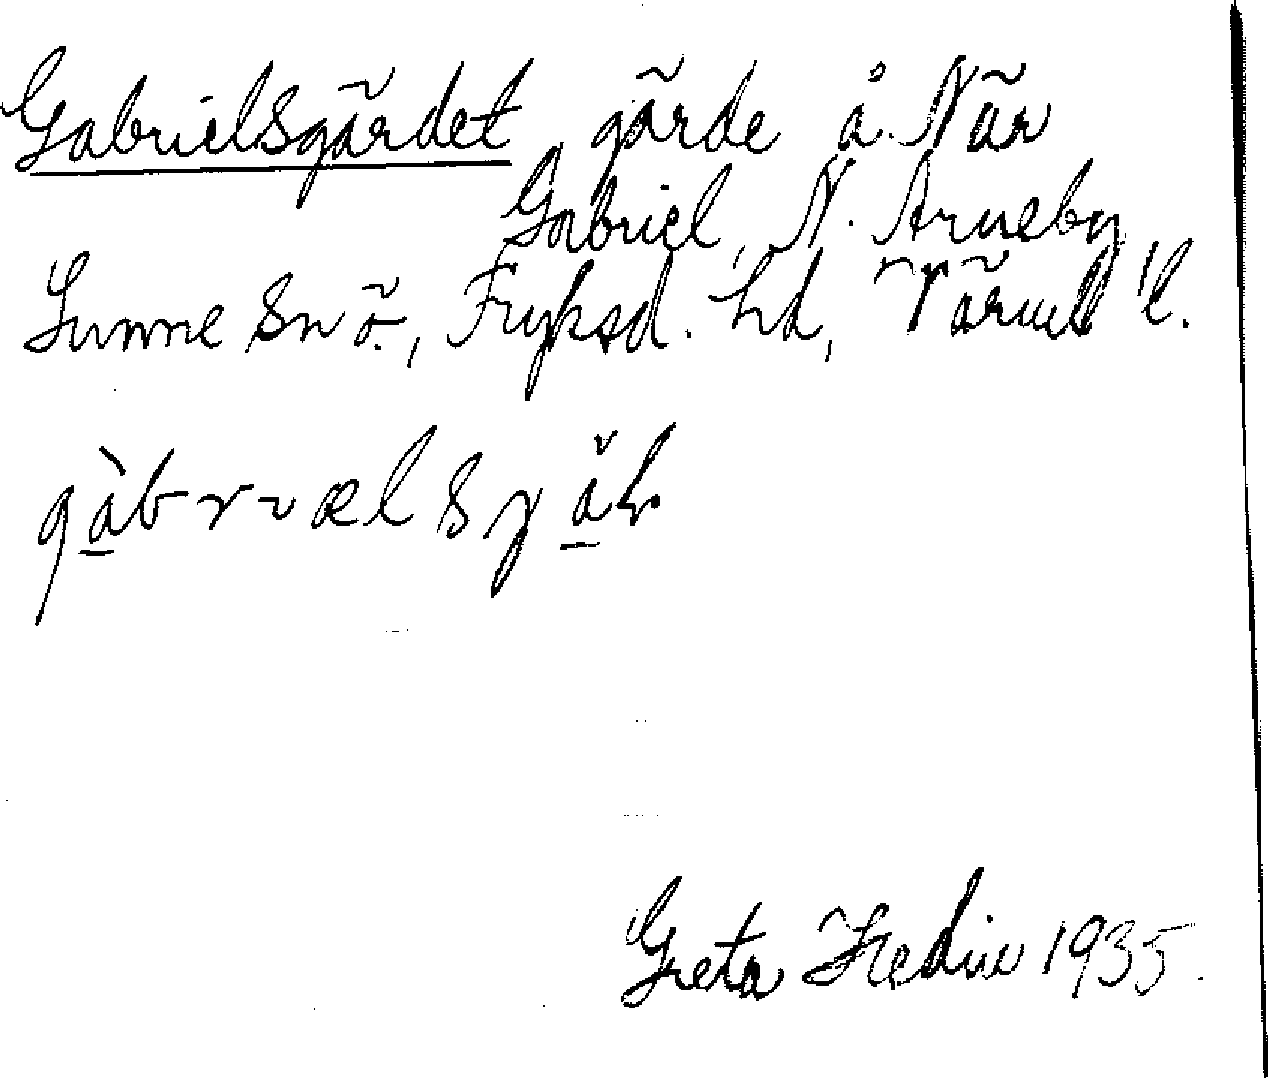 Gabrielsgärdet, gärde å När
Gabriel, N. Årneby,
Sunne sn ö., Fryksd. hd, Värml. l.
Greta Hedin 1935.